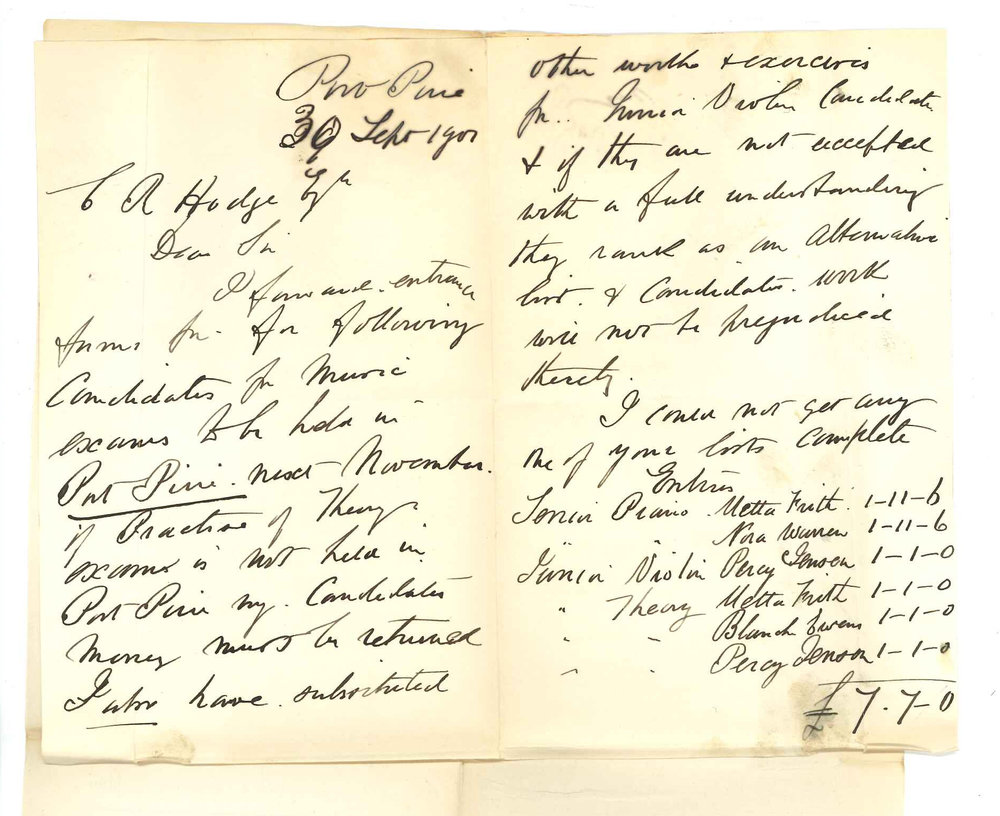 Port Pirie
30 Sept 1901
C R Hodge Esq
Dear Sir
I forward entrance
forms for for following
Candidates for Music
exams to be held in
Port Pirie. next November.
if Practice of Theory
exams is not held in
Port Pirie my. Candidates
Money must be returned
I also have substituted
other works & exercises
for.. Junior Violin Candidate
& if they are not accepted
with a full understanding
they rank as an Alternative
list. & Candidates. work
will not be prejudiced
thereby.
I could not get any
one of your lists complete
Entries
Senior Piano Metta Frith. 1-11-6
" " Nora Warren 1-11-6
Junior Violin Percy Jenson 1-1-0
" Theory Metta Frith 1-1-0
" " Blanch Ewens 1-1-0
" " Percy Jenson 1-1-0
£7.7-0